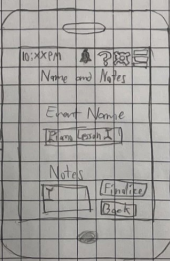 10:XXPM ?
Name and Notes
Event Name
Piano Lesson I
Notes
I
Finalize
Back